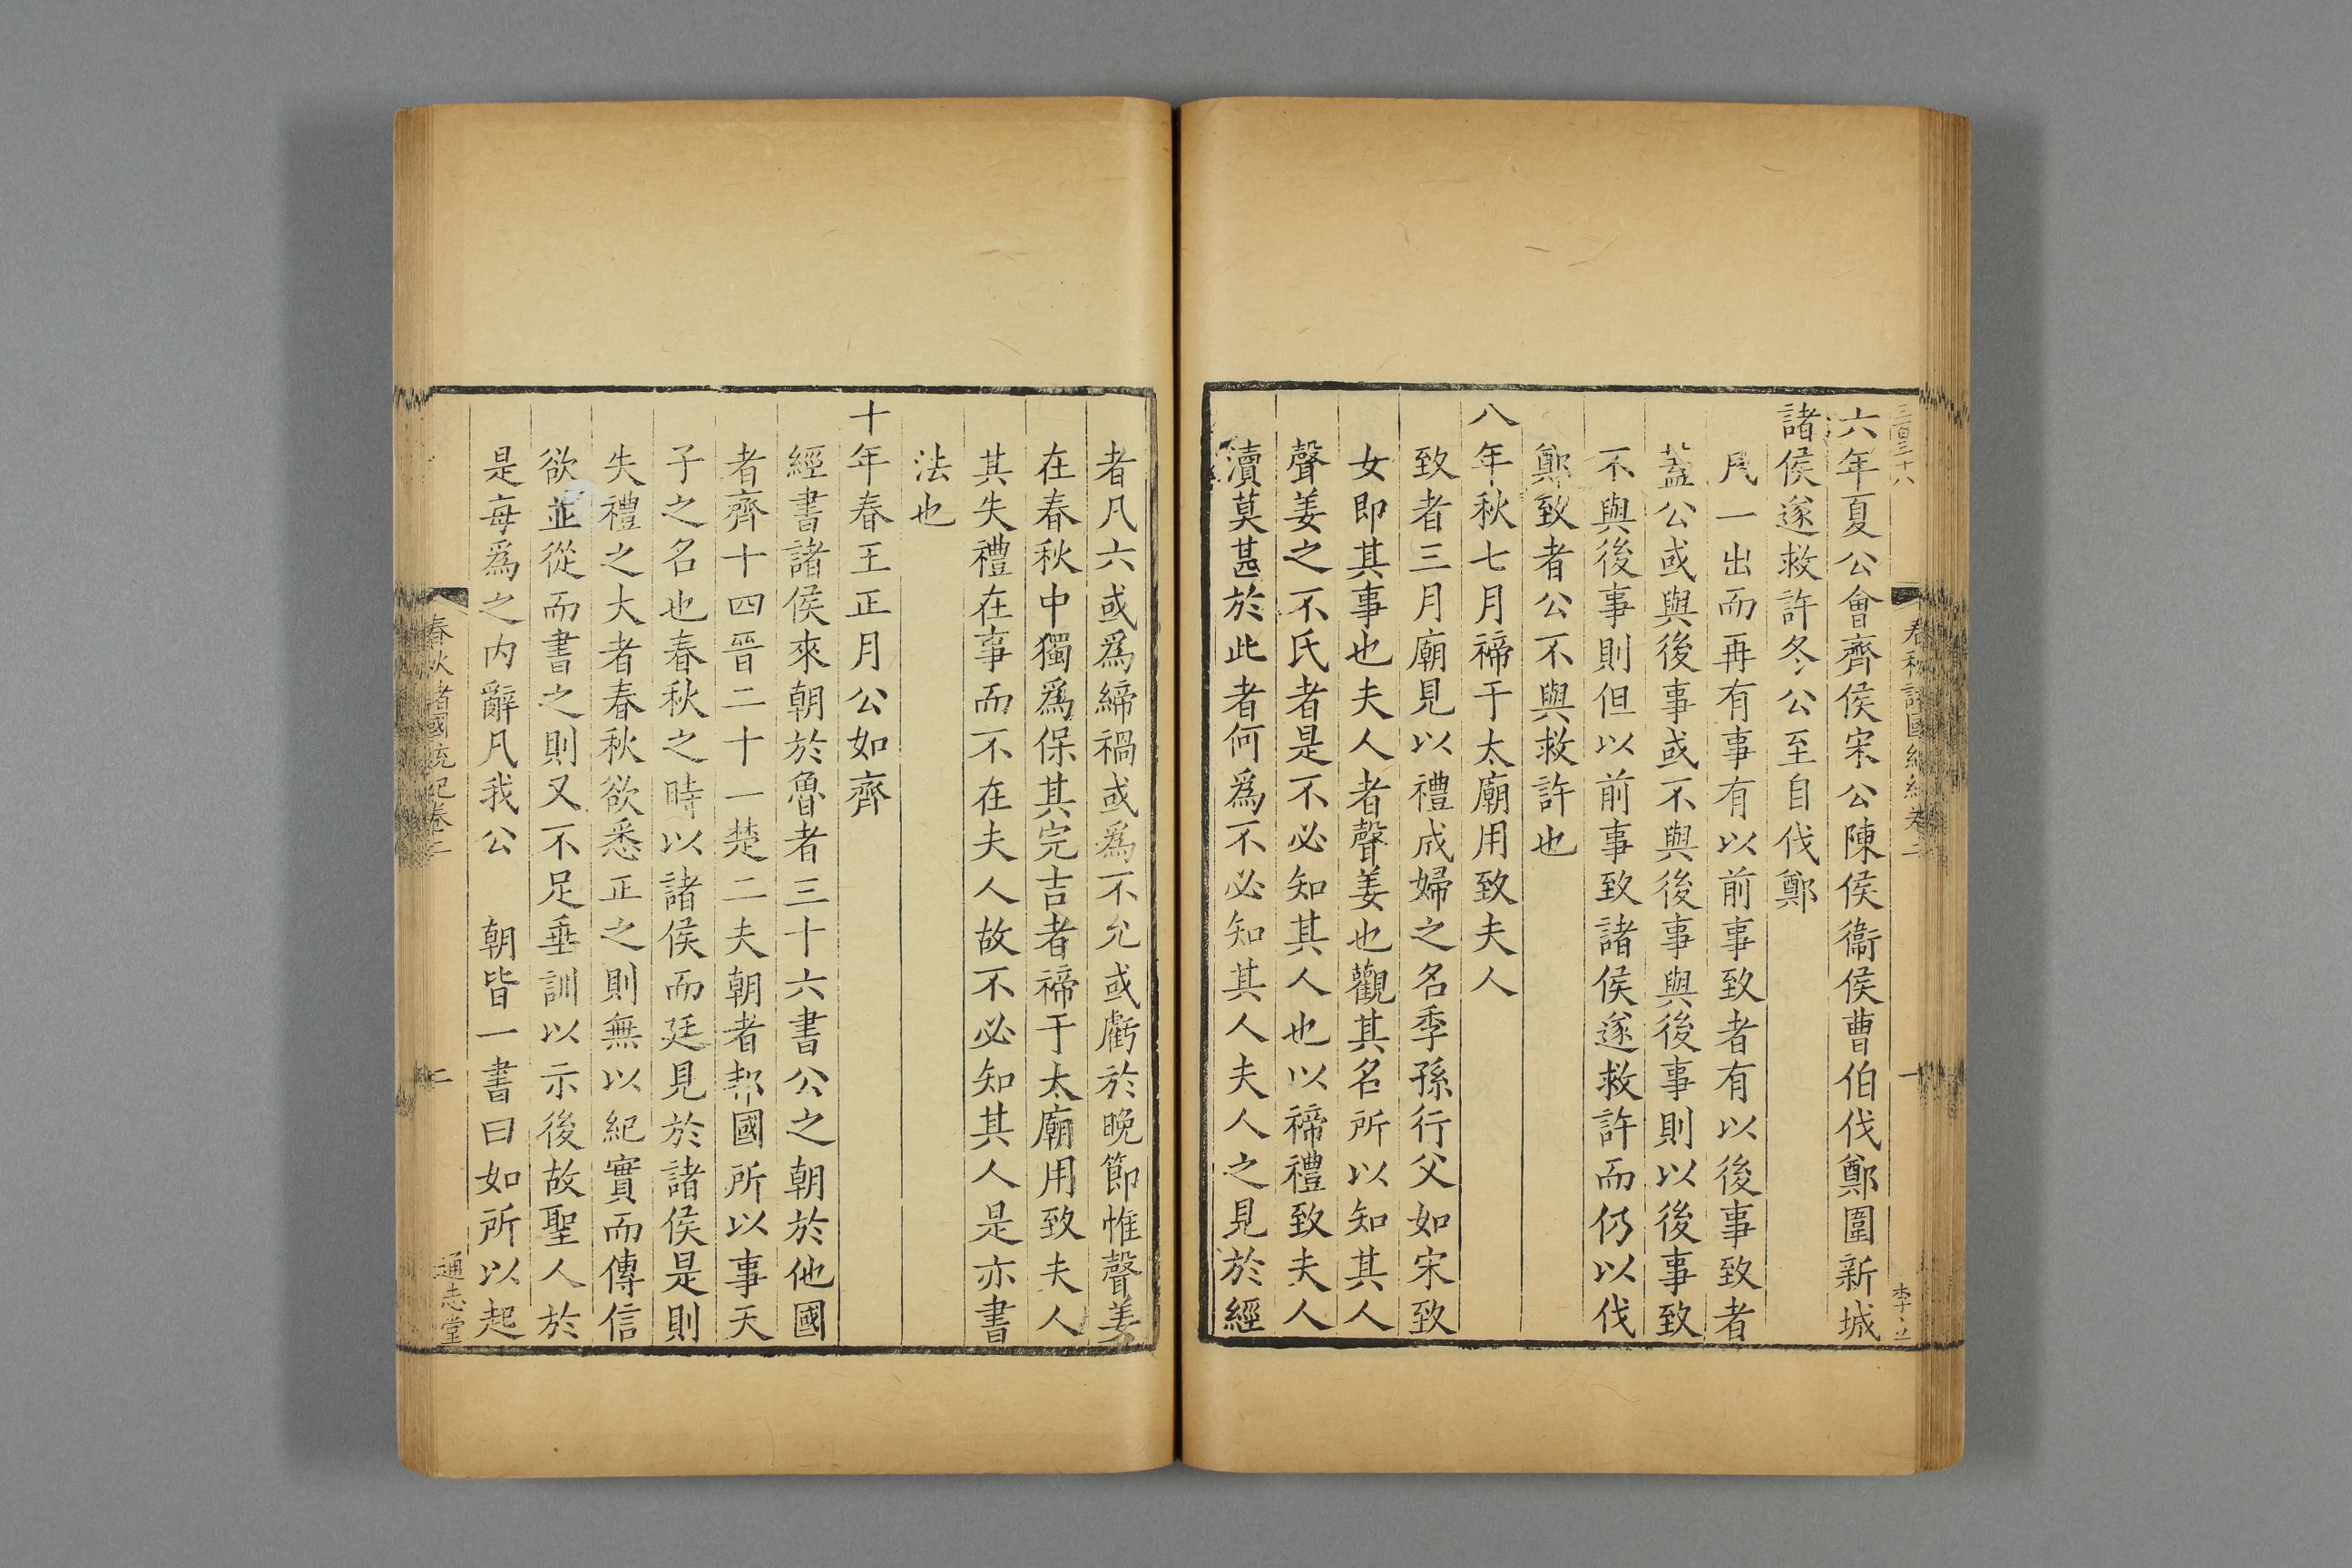 六年夏公會齊侯宋公陳侯衞侯曹伯伐鄭圍新城
諸侯遂救許冬公至自伐鄭
凡一出而再有事有以前事致者有以後事致者
葢公或與後事或不與後事與後事則以後事致
不與後事則但以前事致諸侯遂救許而仍以伐
鄭致者公不與救許也
八年秋七月禘于太廟用致夫人
致者三月廟見以禮成婦之名季孫行父如宋致
女即其事也夫人者聲姜也觀其名所以知其人
聲姜之不氏者是不必知其人也以禘禮致夫人
瀆莫甚於此者何爲不必知其人夫人之見於經
者凡六或爲締禍或爲不允或虧於晚節惟聲姜
在春秋中獨爲保其完吉者禘于太廟用致夫人
其失禮在事而不在夫人故不必知其人是亦書
法也
十年春王正月公如齊
經書諸侯來朝於魯者三十六書公之朝於他國
者齊十四晉二十一楚二夫朝者邦國所以事天
子之名也春秋之時以諸侯而廷見於諸侯是則
失禮之大者春秋欲悉正之則無以紀實而傳信
欲並從而書之則又不足垂訓以示後故聖人於
是每爲之内辭凡我公 朝皆一書曰如所以起
春秋諸國統紀卷二
二
通志堂